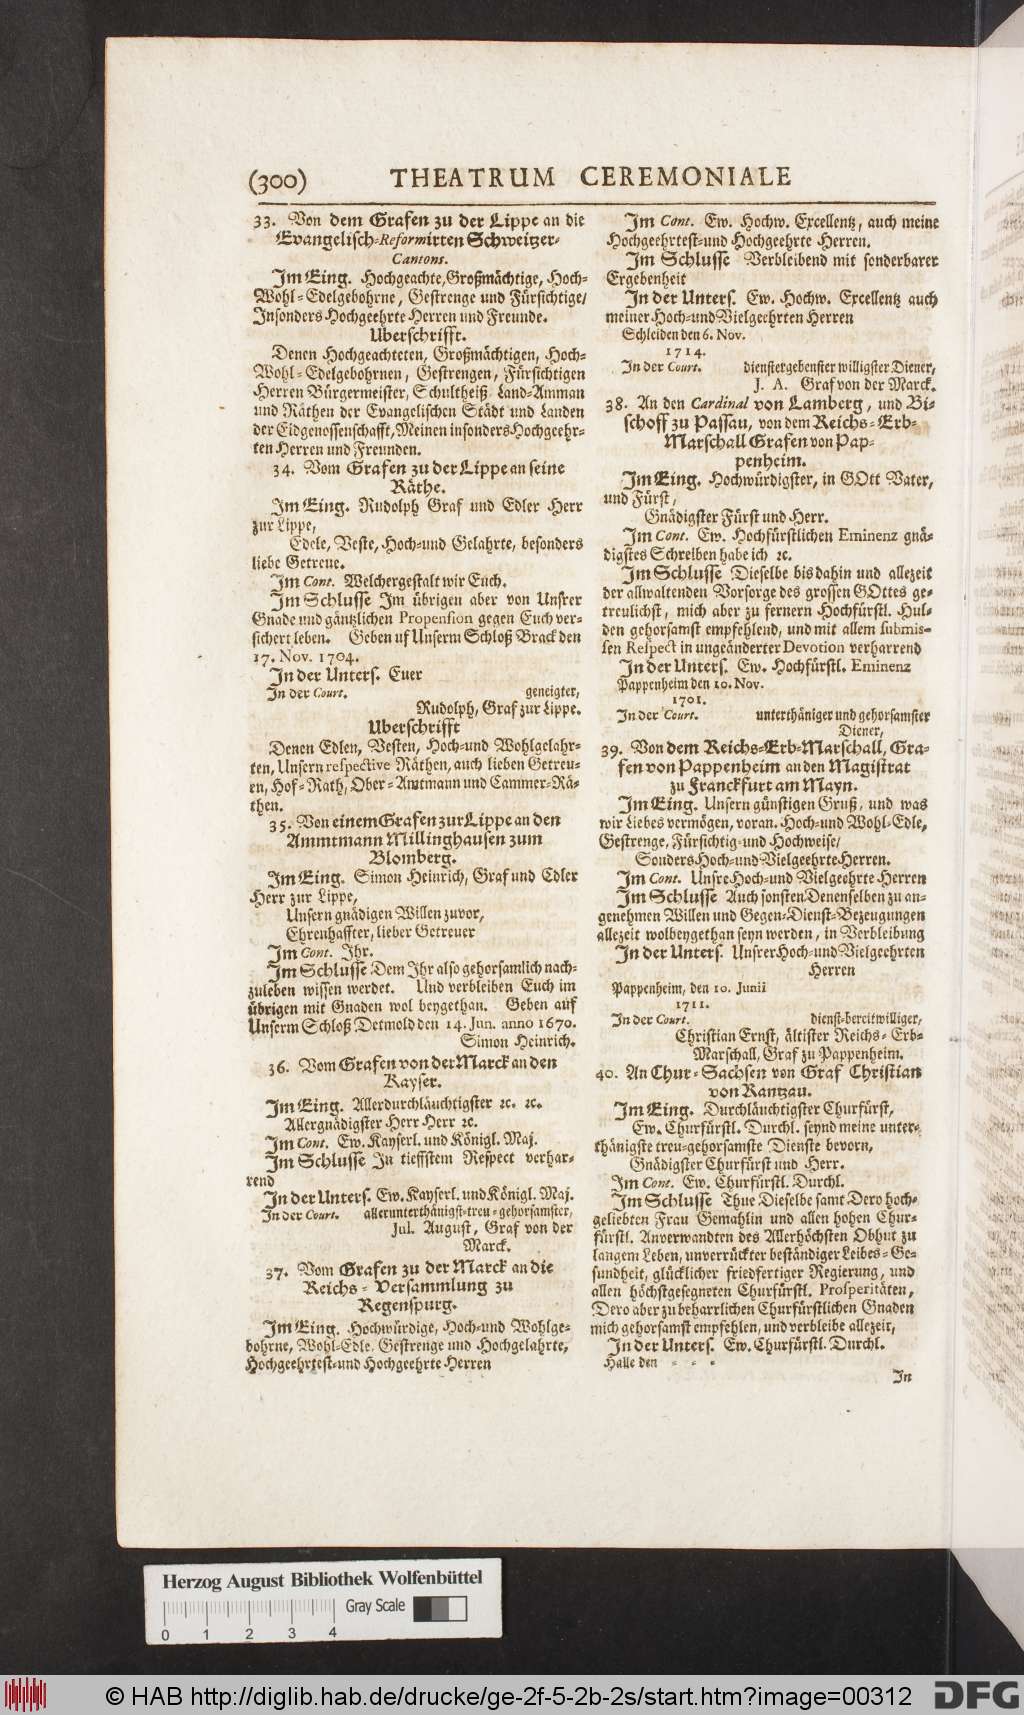 (300) THEATRUM CEREMONIALE
33. Von dem Grafen zu der Lippe an die
Evangelisch-Reformirten Schweitzer-
Cantons.
Im Eing. Hochgeachte, Großmächtige, Hoch-
Wohl-Edelgebohrne, Gestrenge und Fürsichtige/
Insonders Hochgeehrte Herren und Freunde.
Uberschrifft.
Denen Hochgeachteten, Großmächtigen, Hoch-
Wohl-Edelgebohrnen, Gestrengen, Fürsichtigen
Herren Bürgermeister, Schultheiß Land-Amman
und Räthen der Evangelischen Städt und Landen
der Eidgenossenschafft, Meinen insonders Hochgeehr-
ten Herren und Freunden.
34. Vom Grafen zu der Lippe an seine
Räthe.
Im Eing. Rudolph Graf und Edler Herr
zur Lippe,
Edele, Veste, Hoch-und Gelahrte, besonders
liebe Getreue.
Im Cont. Welchergestalt wir Euch.
Im Schlusse Im übrigen aber von Unsrer
Gnade und gäntzlichen Propension gegen Euch ver-
sichert leben. Geben uf Unserm Schloß Brack den
17. Nov. 1704.
In der Unters. Euer
In der Court. geneigter,
Rudolph, Graf zur Lippe.
Uberschrifft
Denen Edlen, Vesten, Hoch-und Wohlgelahr-
ten, Unsern respective Räthen, auch lieben Getreu-
en, Hof-Rath, Ober-Amtmann und Cammer-Rä-
then.
35. Von einem Grafen zur Lippe an den
Ammtmann Millinghausen zum
Blomberg.
Im Eing. Simon Heinrich, Graf und Edler
Herr zur Lippe,
Unsern gnädigen Willen zuvor,
Ehrenhaffter, lieber Getreuer
Im Cont. Ihr.
Im Schlusse Dem Ihr also gehorsamlich nach-
zuleben wissen werdet. Und verbleiben Euch im
übrigen mit Gnaden wol beygethan. Geben auf
Unserm Schloß Detmold den 14. Jun. anno 1670.
Simon Heinrich.
36. Vom Grafen von der Marck an den
Kayser.
Im Eing. Allerdurchläuchtigster ꝛc. ꝛc.
Allergnädigster Herr Herr ꝛc.
Im Cont. Ew. Kayserl. und Königl. Maj.
Im Schlusse In tieffstem Respect verhar-
rend
In der Unters. Ew. Kayserl. und Königl. Maj.
In der Court. allerunterthänigst-treu-gehorsamster,
Jul. August, Graf von der
Marck.
37. Vom Grafen zu der Marck an die
Reichs-Versammlung zu
Regenspurg.
Im Eing. Hochwürdige, Hoch-und Wohlge-
bohrne, Wohl-Edle, Gestrenge und Hochgelahrte,
Hochgeehrtest-und Hochgeehrte Herren
Im Cont. Ew. Hochw. Excellentz, auch meine
Hochgeehrtest-und Hochgeehrte Herren.
Im Schlusse Verbleibend mit sonderbarer
Ergebenheit
In der Unters. Ew. Hochw. Excellentz auch
meiner Hoch-und Vielgeehrten Herren
Schleiden den 6. Nov.
1714.
In der Court. dienstergebenster willigster Diener,
J. A. Graf von der Marck.
38. An den Cardinal von Lamberg, und Bi-
schoff zu Passau, von dem Reichs-Erb-
Marschall Grafen von Pap-
penheim.
Im Eing. Hochwürdigster, in GOtt Vater,
und Fürst,
Gnädigster Fürst und Herr.
Im Cont. Ew. Hochfürstlichen Eminenz gnä-
digstes Schreiben habe ich ꝛc.
Im Schlusse Dieselbe bis dahin und allezeit
der allwaltenden Vorsorge des grossen GOttes ge-
treulichst, mich aber zu fernern Hochfürstl. Hul-
den gehorsamst empfehlend, und mit allem submis-
sen Respect in ungeänderter Devotion verharrend
In der Unters. Ew. Hochfürstl. Eminenz
Pappenheim den 10. Nov.
1701.
In der Court. unterthäniger und gehorsamster
Diener,
39. Von dem Reichs-Erb-Marschall, Gra-
fen von Pappenheim an den Magistrat
zu Franckfurt am Mayn.
Im Eing. Unsern günstigen Gruß, und was
wir Liebes vermögen, voran. Hoch-und Wohl-Edle,
Gestrenge, Fürsichtig-und Hochweise/
Sonders Hoch-und Vielgeehrte Herren.
Im Cont. Unsre Hoch-und Vielgeehrte Herren
Im Schlusse Auch sonsten Denenselben zu an-
genehmen Willen und Gegen-Dienst-Bezeugungen
allezeit wolbeygethan seyn werden, in Verbleibung
In der Unters. Unsrer Hoch-und Vielgeehrten
Herren
Pappenheim, den 10. Junii
1711.
In der Court. dienst-bereitwilliger,
Christian Ernst, ältister Reichs-Erb-
Marschall, Graf zu Pappenheim.
40. An Chur-Sachsen von Graf Christian
von Rantzau.
Im Eing. Durchläuchtigster Churfürst,
Ew. Churfürstl. Durchl. seynd meine unter-
thänigste treu-gehorsamste Dienste bevorn,
Gnädigster Churfürst und Herr.
Im Cont. Ew. Churfürstl. Durchl.
Im Schlusse Thue Dieselbe samt Dero hoch-
geliebten Frau Gemahlin und allen hohen Chur-
fürstl. Anverwandten des Allerhöchsten Obhut zu
langem Leben, unverrückter beständiger Leibes-Ge-
sundheit, glücklicher friedfertiger Regierung, und
allen höchstgesegneten Churfürstl. Prosperitäten,
Dero aber zu beharrlichen Churfürstlichen Gnaden
mich gehorsamst empfehlen, und verbleibe allezeit,
In der Unters. Ew. Churfürstl. Durchl.
Halle den - - -
In
Herzog August Bibliothek Wolfenbüttel
Gray Scale
0 1 2 3 4
© HAB http://diglib.hab.de/drucke/ge-2f-5-2b-2s/start.htm?image=00312 DFG